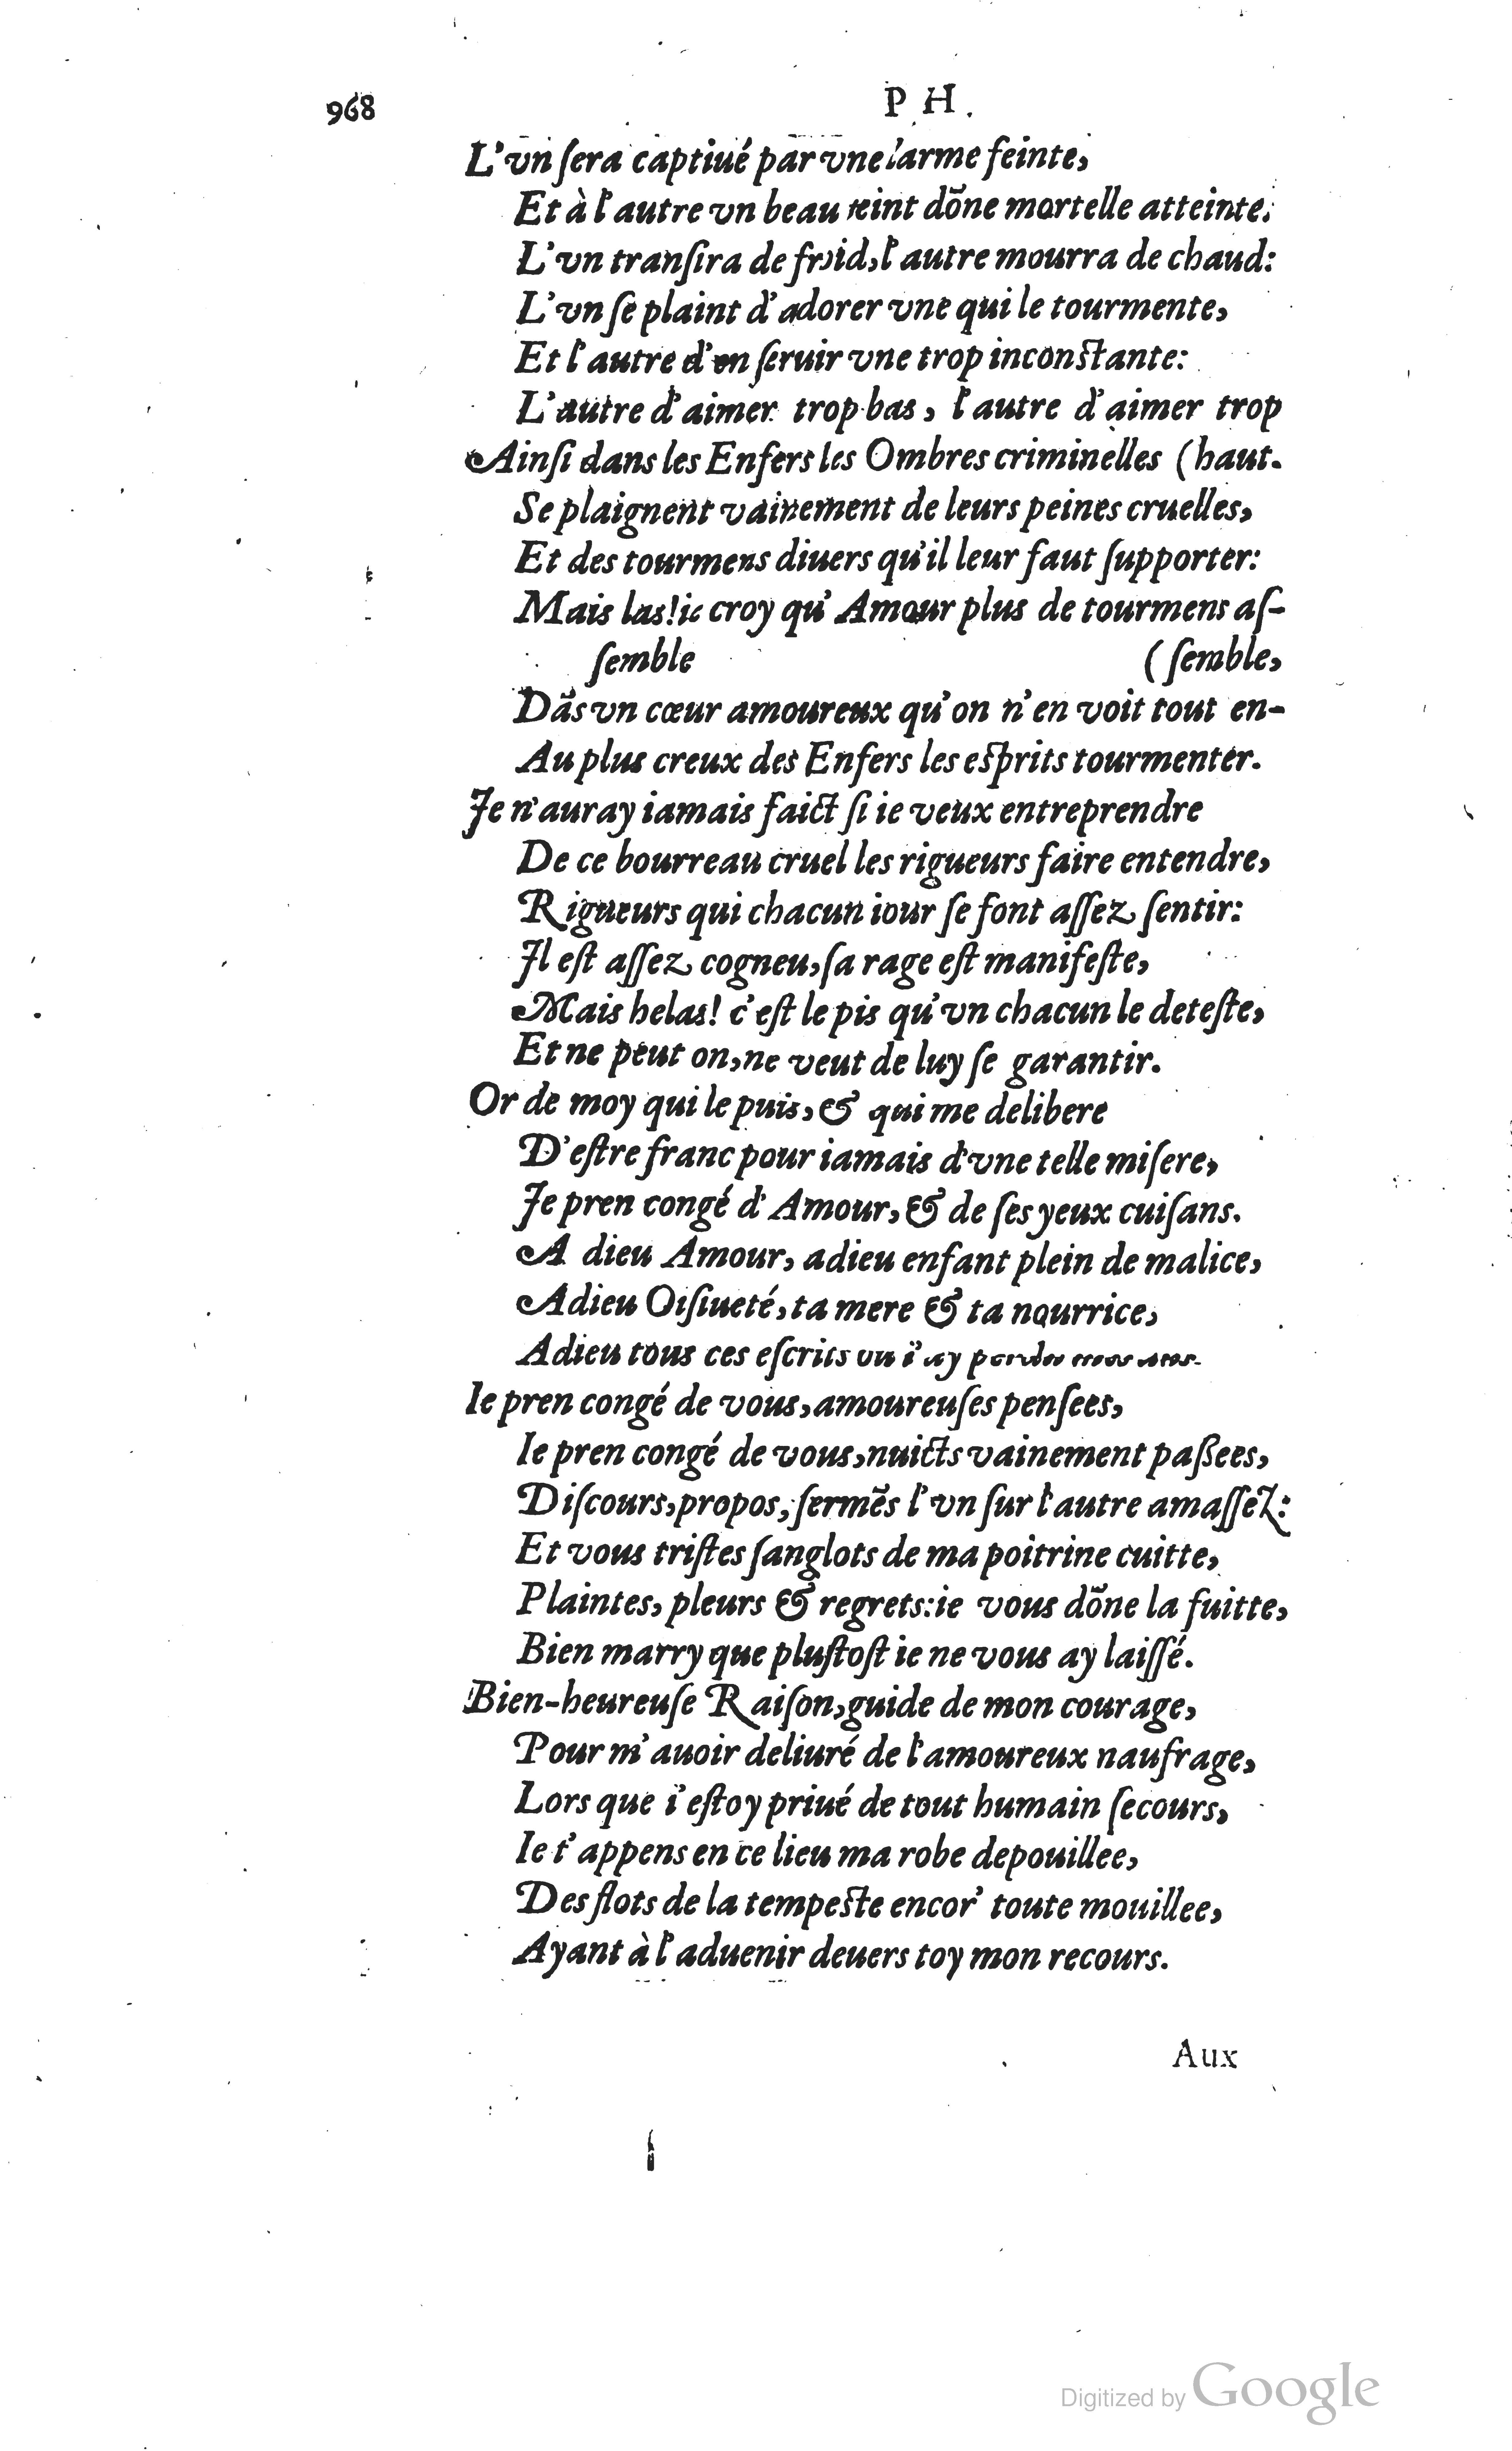 968
P H.
L'vn ſera captiué par vne larme feinte,
Et à l'autre vn beau teint dõne mortelle atteinte.
L'vn tranſira de froid, l'autre mourra de chaud:
L'vn ſe plaint d'adorer vne qui le tourmente,
Et l'autre d'en ſeruir vne trop inconſtante:
L'autre d'aimer trop bas, l'autre d'aimer trop
Ainſi dans les Enfers les Ombres criminelles (haut.
Se plaignent vainement de leurs peines cruelles,
Et des tourmens diuers qu'il leur faut ſupporter:
Mais las! ie croy qu'Amour plus de tourmens aſ-
ſemble (ſemble,
Dãs vn cœur amoureux qu'on n'en voit tout en-
Au plus creux des Enfers les eſprits tourmenter.
Je n'auray iamais faict ſi ie veux entreprendre
De ce bourreau cruel les rigueurs faire entendre,
Rigueurs qui chacun iour ſe font aſſez ſentir:
Jl eſt aſſez cogneu, ſa rage eſt manifeſte,
Mais helas! c'eſt le pis qu'vn chacun le deteſte,
Et ne peut on, ne veut de luy ſe garantir.
Or de moy qui le puis, & qui me delibere
D'eſtre franc pour iamais d'vne telle miſere,
Je pren congé d'Amour, & de ſes yeux cuiſans.
A dieu Amour, adieu enfant plein de malice,
Adieu Oiſiueté, ta mere & ta nourrice,
Adieu tous ces eſcrits ou i'ay
Ie pren congé de vous, amoureuſes penſees,
Ie pren congé de vous, nuicts vainement paßees,
Diſcours, propos, ſermẽs l'vn ſur l'autre amaſſez:
Et vous triſtes ſanglots de ma poitrine cuitte,
Plaintes, pleurs & regrets: ie vous dõne la fuitte,
Bien marry que pluſtoſt ie ne vous ay laiſſé.
Bien-heureuſe Raiſon, guide de mon courage,
Pour m'auoir deliuré de l'amoureux naufrage,
Lors que i'eſtoy priué de tout humain ſecours,
Ie t'appens en ce lieu ma robe depouillee,
Des flots de la tempeſte encor' toute mouillee,
Ayant à l'aduenir deuers toy mon recours.
Aux
Digitized by Google